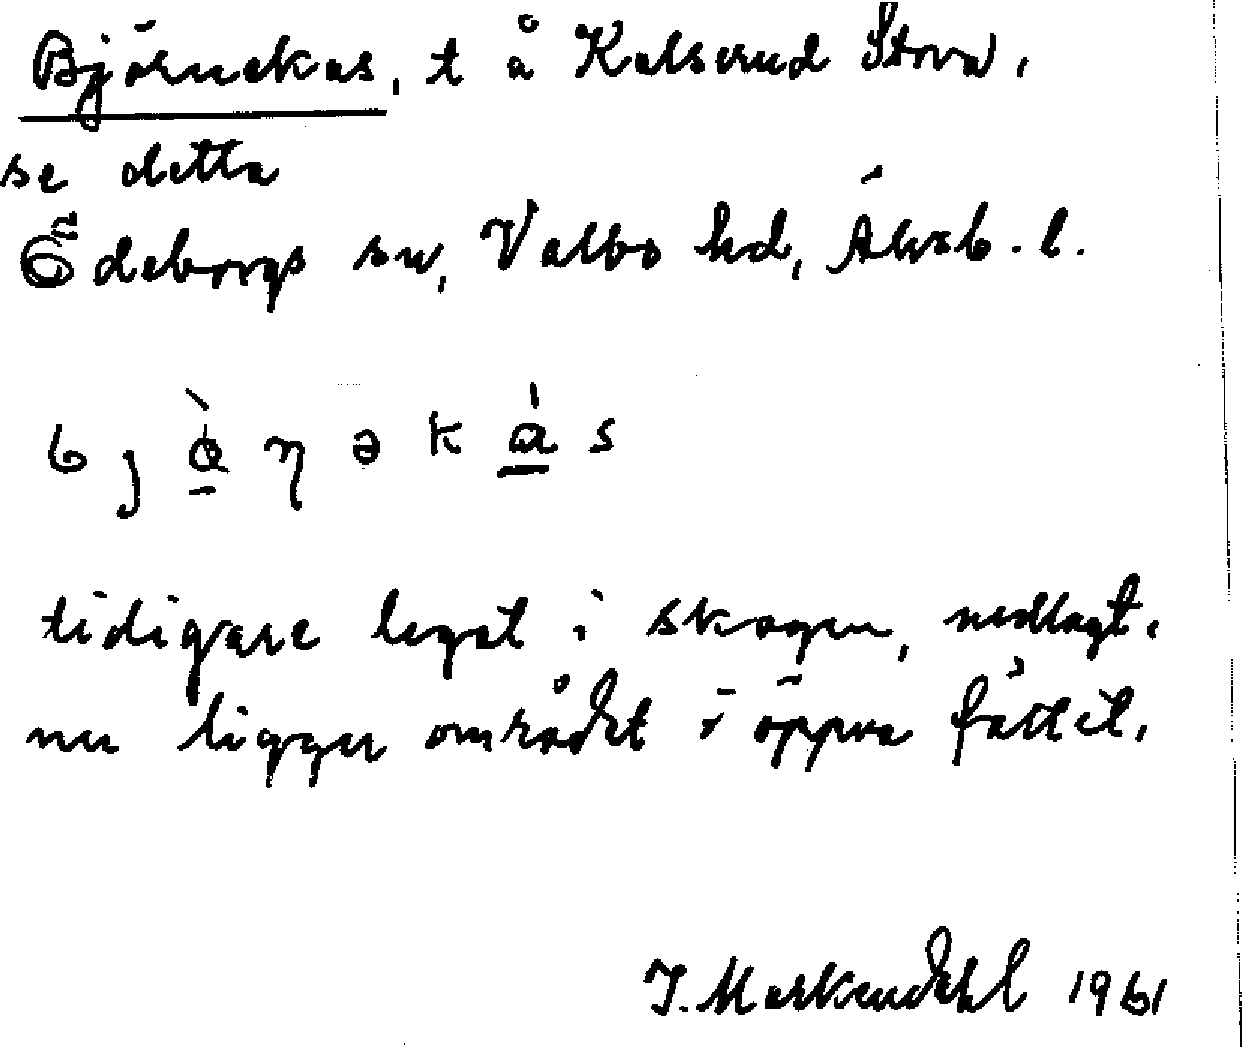 Björnekas, t å Kalserud Stora,
se detta
Ödeborgs sn, Valbo hd, Älvsb. l.
bjὰ̱ŋəkά̱s
tidigare legat i skogen, nedlagt.
nu ligger området i öppna fältet.
I. Markendahl 1961